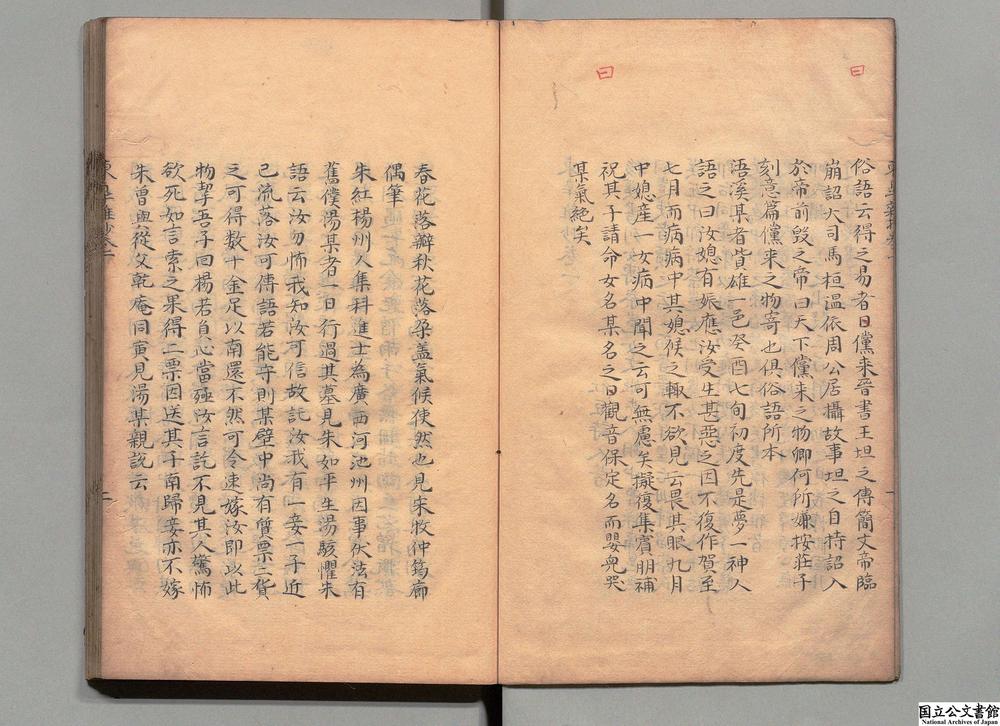 俗語云得之易者曰儻来晉書王坦之傳簡文帝臨
崩詔大司馬桓温依周公居攝故事坦之自持詔入
於帝前毀之帝曰天下儻来之物卿何所嫌按莊子
刻意篇儻来之物寄也俱俗語所本
語溪某者貲雄一邑癸酉七旬初度先是夢一神人
語之曰汝媳有娠應汝受生甚惡之因不復作賀至
七月而病病中其媳候之輒不欲見云畏其眼九月
中媳產一女病中聞之云可無慮矣擬復集賓朋補
祝其子請命女名某名之曰觀音保定名而嬰兒哭
某氣絶矣
春花落瓣秋花落朶盖氣候使然也見宋牧仲筠廊
偶筆
朱紅楊州人集科進士為廣西河池州因事伏法有
舊僕湯某者一日行過其墓見朱如平生湯駭懼朱
語云汝勿怖我知汝可信故託汝我有一妾一子近
已流落汝可傳語若能守則某壁中尚有質票二貨
之可得数十金足以南還不然可令速嫁汝即以此
物挈吾子回楊若負心當殛汝言訖不見其人驚怖
欲死如言索之果得二票因送其子南歸妾亦不嫁
朱曾與從父乾庵同寅見湯某親説云
國立公文書館
National Archives of Japan